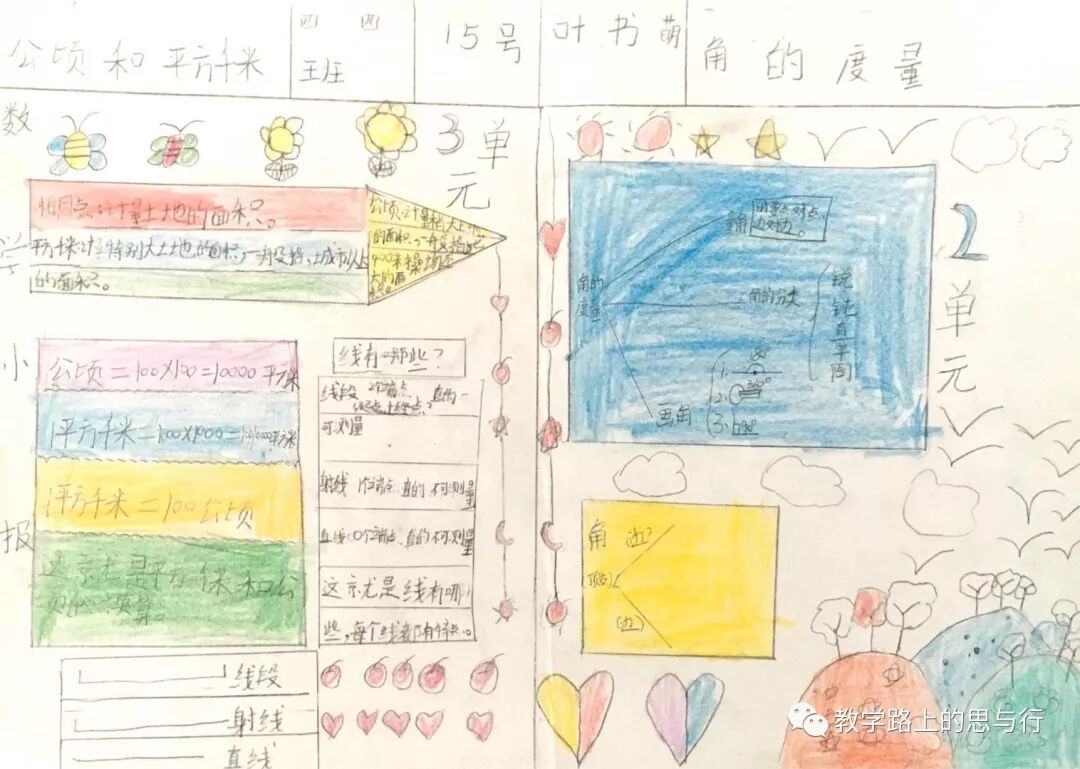 公顷和平方千米
四 四
王班
15号
叶书萌
角的度量
数
学
小
报
3
单
元
相同点:计量土地的面积。
平方千米:计量特别大土地的面积,
的面积。
公顷:计量
的面积,
400米操场
大的面
积。
公顷=100×100=10000平方米
1平方千米=1000×1000=1000000平方米
1平方千米=100公顷
这就是平方千米和公
顷的
线有哪些?
线段 2个端点 直的
可测量
射线 1个端点 直的 不可测量
直线 0个端点、直的 不可测量
这就是线有哪
些,每个线都有特点。
线段
射线
直线
2
单
元
角的
度量
量角
点对点
边对边。
角的分类
锐
钝
直
平
周
画角
1.
2.
3.
角 边
(顶点)
(边)
教学路上的思与行